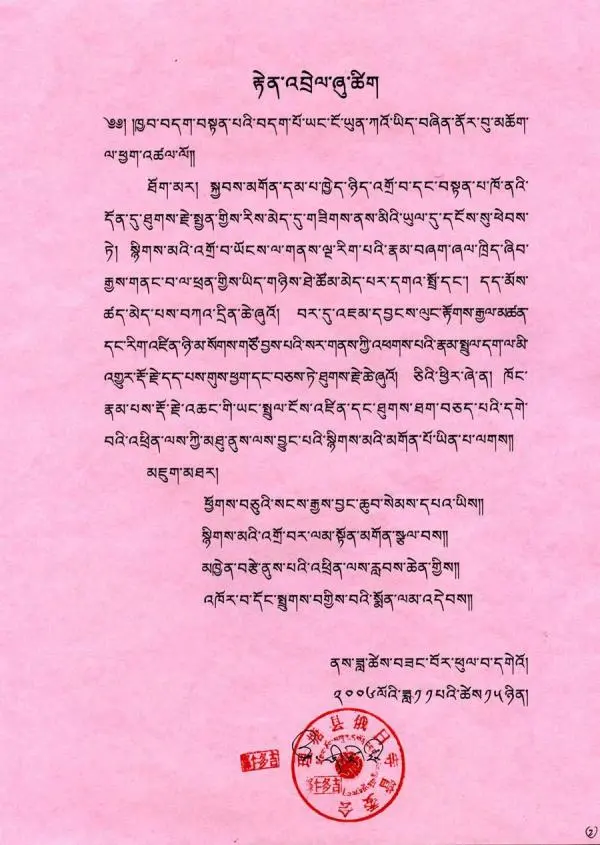 རྟེན་འབྲེལ་ཞུ་ཚིག
༄༅། །ཁྱབ་བདག་བསྟན་པའི་བདག་པོ་ཡང་ངོ་ཡུན་ཀའོ་ཡིད་བཞིན་ནོར་བུ་མཆོག
ལ་ཕྱག་འཚལ་ལོ༎
ཐོག་མར། སྐྱབས་མགོན་དམ་པ་ཁྱེད་ཉིད་འགྲོ་བ་དང་བསྟན་པ་ཁོ་ནའི་
དོན་དུ་ཐུགས་རྗེ་སྤྱན་གྱིས་རིས་མེད་དུ་གཟིགས་ནས་མིའི་ཡུལ་དུ་དངོས་སུ་ཕེབས་
ཏེ། སྙིགས་མའི་འགྲོ་བ་ཡོངས་ལ་གནས་ལྔ་རིག་པའི་རྣམ་བཞག་ཞལ་ཁྲིད་ཞིབ་
རྒྱས་གནང་བ་ལ་ཕྲན་གྱིས་ཡིད་གཉིས་ཐེ་ཚོམ་མེད་པར་དགའ་སྤྲོ་དང་། དད་མོས་
ཚད་མེད་པས་བཀའ་དྲིན་ཆེ་ཞུའོ། བར་དུ་འཇམ་དབྱངས་ལུང་རྟོགས་རྒྱལ་མཚན་
དང་རིག་འཛིན་ཉི་མ་སོགས་གཙོ་བྱས་པའི་སར་གནས་ཀྱི་འཕགས་པའི་རྣམ་སྤྲུལ་དག་ལ་མི་
འགྱུར་རྡོ་རྗེ་དད་པས་གུས་ཕྱག་དང་བཅས་ཏེ་ཐུགས་རྗེ་ཆེ་ཞུའོ། ཅིའི་ཕྱིར་ཞེ་ན། ཁོང་
རྣམ་པས་རྡོ་རྗེ་འཆང་གི་ཡང་སྤྲུལ་ངོས་འཛིན་དང་ཐུགས་ཐག་བཅད་པའི་དགེ་
བའི་འཕྲིན་ལས་ཀྱི་མཐུ་ནུས་ལས་བྱུང་བའི་སྙིགས་མའི་མགོན་པོ་ཡིན་པ་ལགས༎
མཇུག་མཐར།
ཕྱོགས་བཅུའི་སངས་རྒྱས་བྱང་ཆུབ་སེམས་དཔའ་ཡིས༎
སྙིགས་མའི་འགྲོ་བར་ལམ་སྟོན་མགོན་སྩལ་བས༎
མཁྱེན་བརྩེ་ནུས་པའི་འཕྲིན་ལས་རླབས་ཆེན་གྱིས༎
འཁོར་བ་དོང་སྤྲུགས་བགྱིས་བའི་སྨོན་ལམ་འདེབས༎
ནས་ཟླ་ཚེས་བཟང་པོར་ཕུལ་བ་དགེའོ།
༢༠༠༦ལོའི་ཟླ་༡༡པའི་ཚེས་༡༥ཉིན།
县俄日寺管委会
②